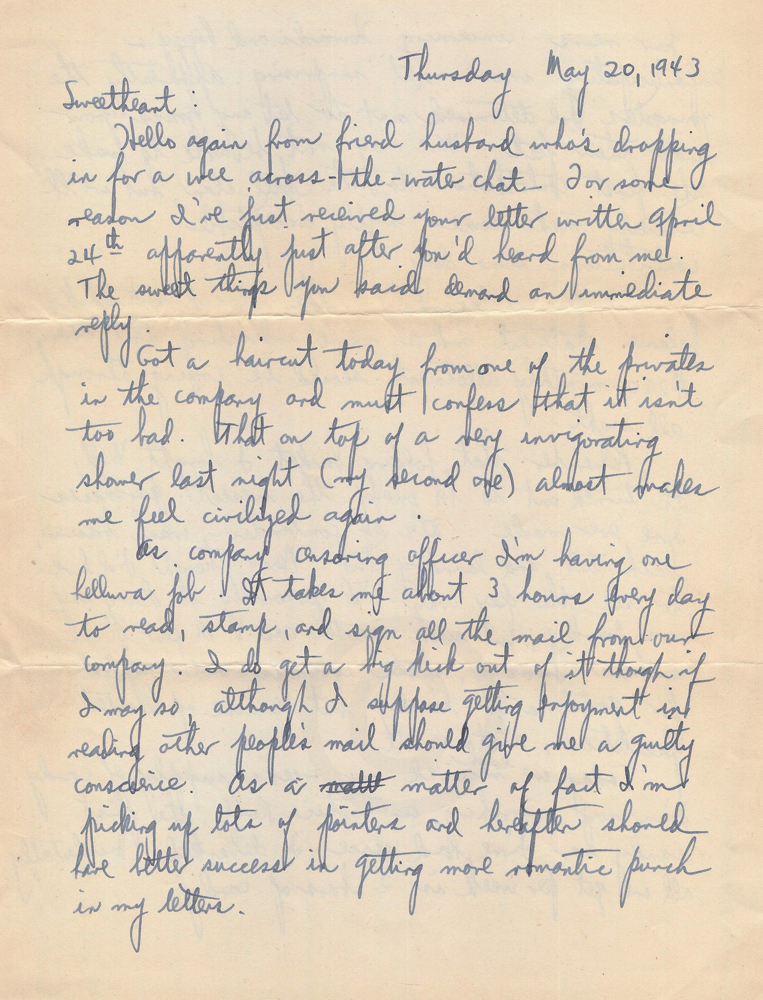 Thursday May 20, 1943
Sweetheart :
Hello again from friend husband who's dropping
in for a wee across-the-water chat. For some
reason I've just received your letter written April
24th apparently just after you'd heard from me.
The sweet things you said demand an immediate
reply.
Got a haircut today from one of the privates
in the company and must confess that it isn't
too bad. That on top of a very invigorating
shower last night (my second one) almost makes
me feel civilized again.
As company censoring officer I'm having one
helluva job. It takes me about 3 hours every day
to read, stamp, and sign all the mail from our
company. I do get a big kick out of it though if
I may so, although I suppose getting enjoyment in
reading other people's mail should give me a guilty
conscience. As a matt matter of fact I'm
picking up lots of pointers and hereafter should
have better success in getting more romantic punch
in my letters.